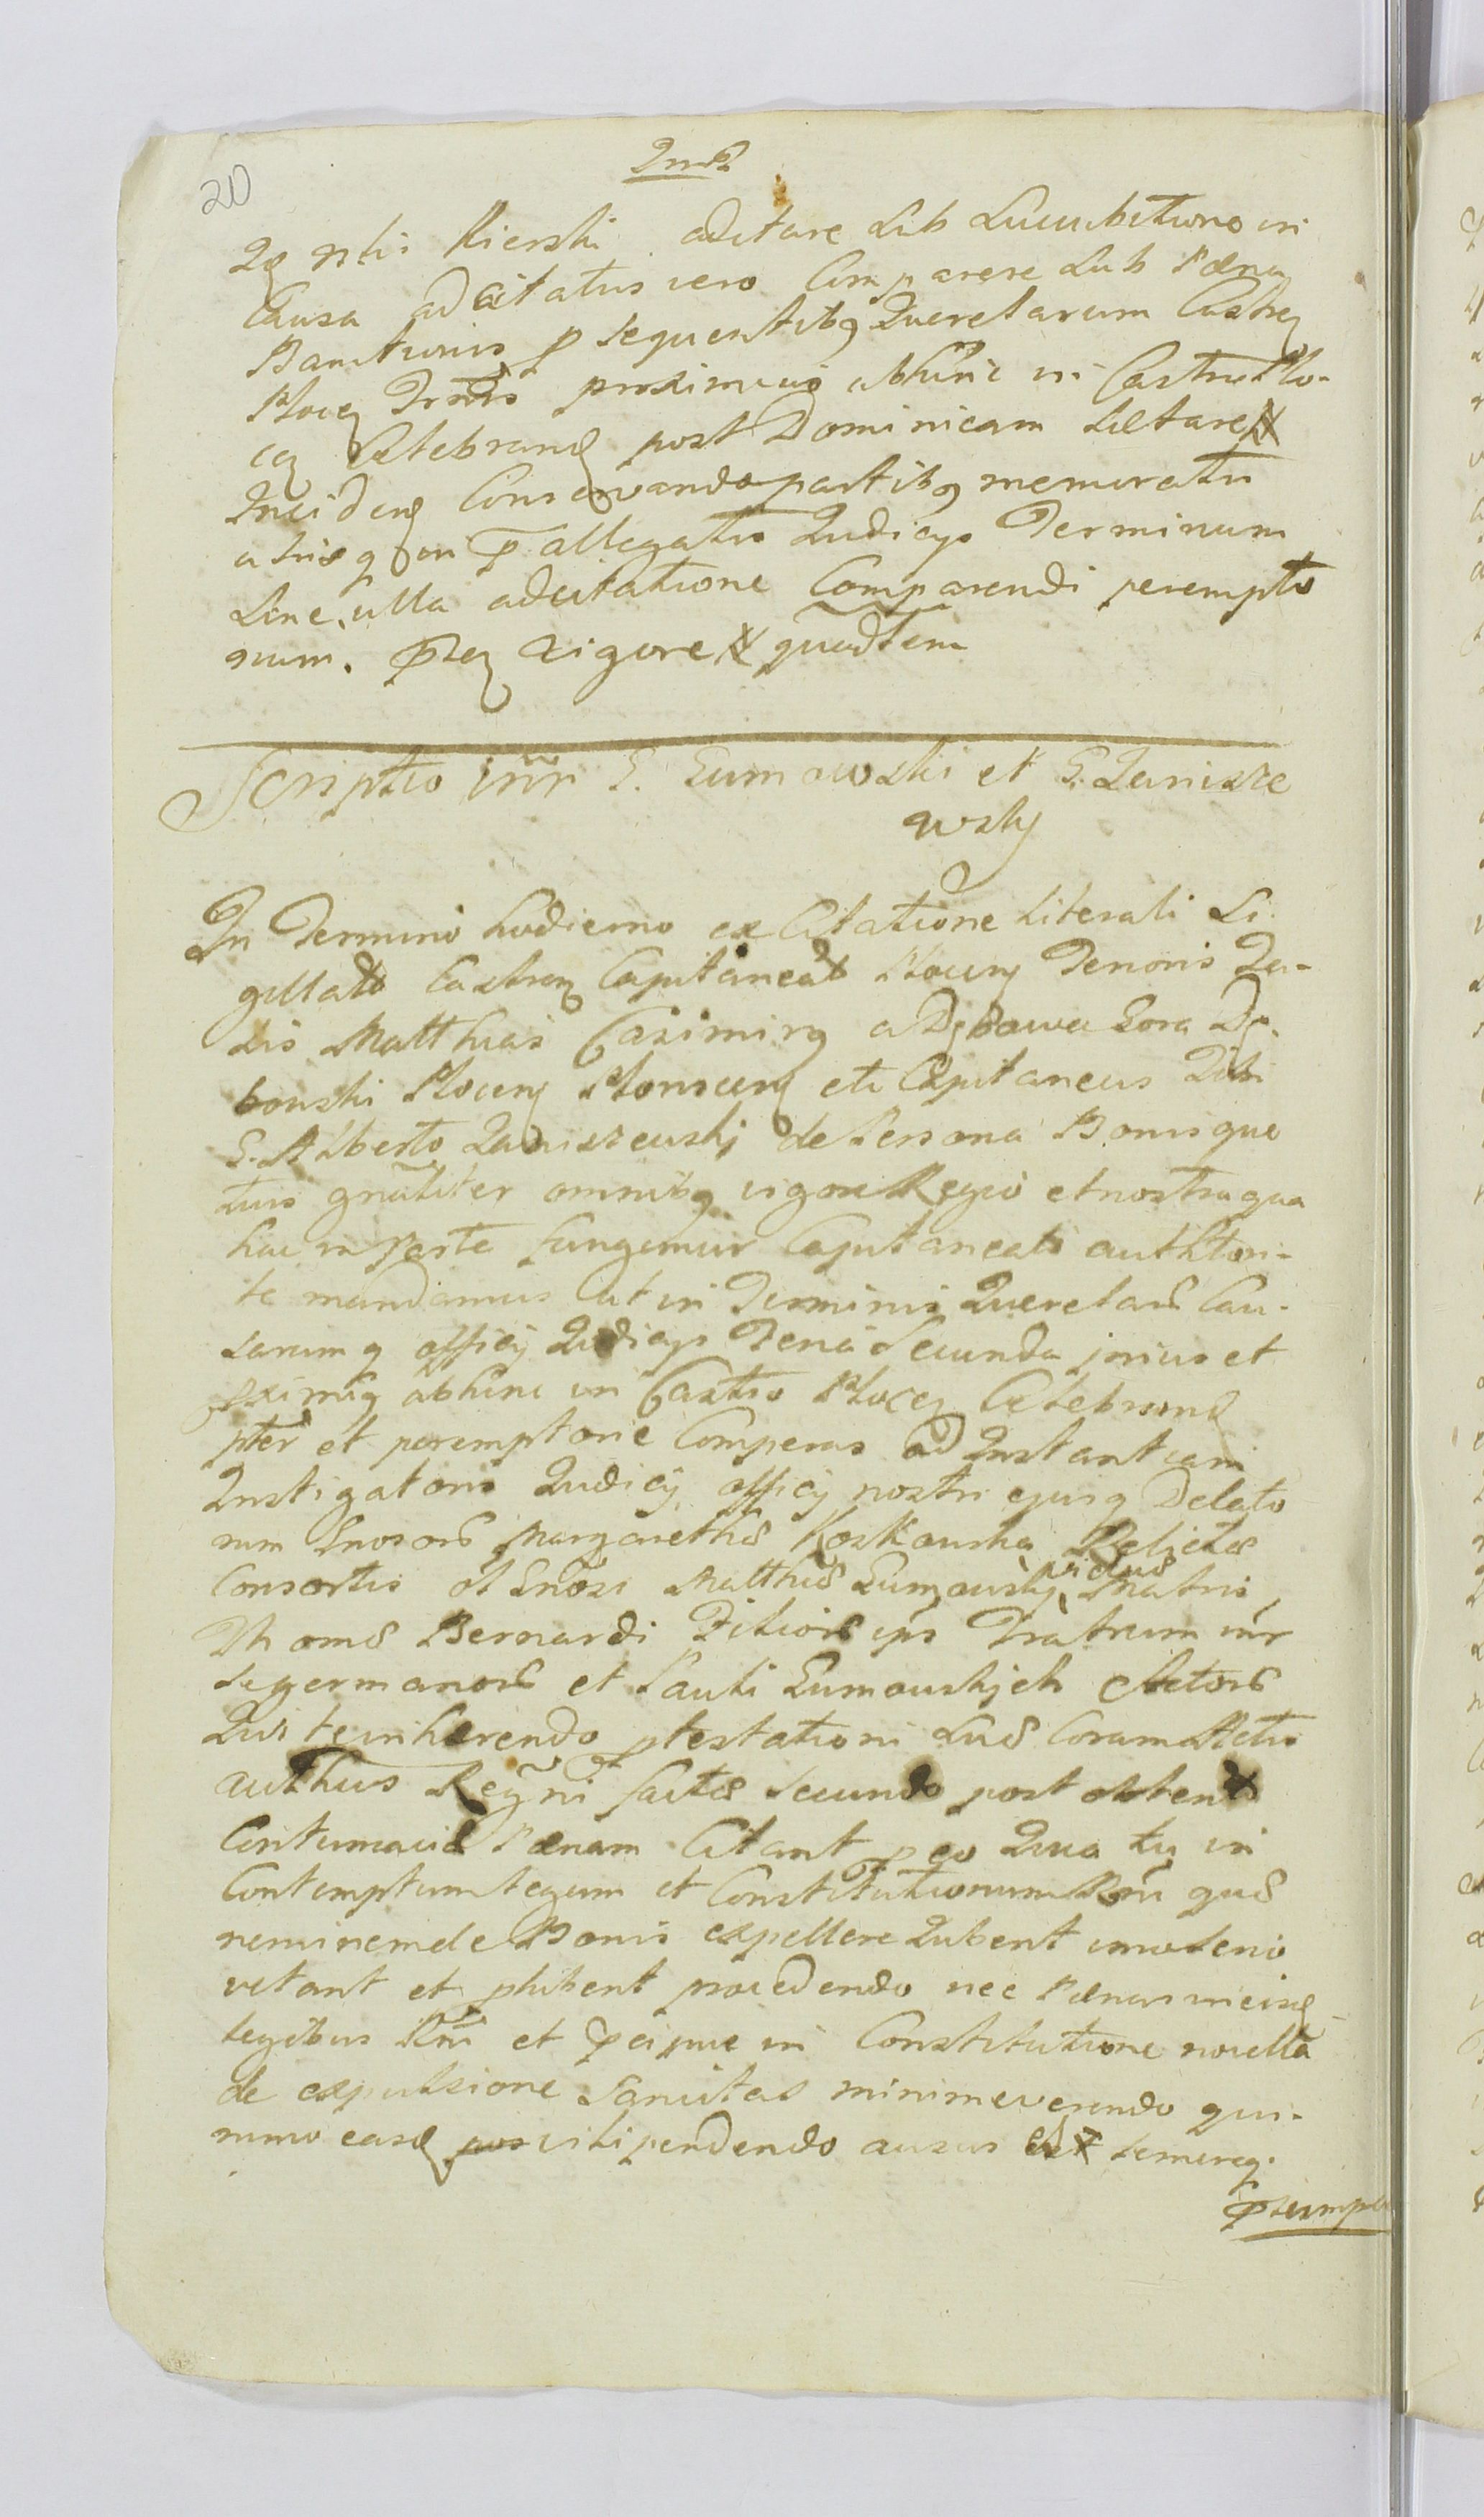 20
Kierski adcitare sub succubitione in
Causa adcitatus vero Comparere sub Pœna
Banitionis p sequentibq Querelarum Castren
Plocen Trnos proximius abhinc in Castro Plo-
cen Celebrand post Dominicam Lætare
Inciden Conservando partibq memoratis
in p allegatis Judicys Terminum
sine ulla adcitatione Comparendi perempto
rium. rigore quadtem
Scriptio intr G. Gumowski et G. Janisze
wsky
In Termino hodierno ex Citatione literali Si-
gillata Castren Capitaneat Plocen Tenoris Ta-
lis Matthias Casimirq a Dębowa Gora Dę-
bowski Plocen Plonscen etc Capitaneus Tibi
G. Alberto Janiszewskj de Persona Bonisque
tuis gnaliter omnibq vigore Regio et nostra qua
hac in Parte fungimur Capitaneati authtori-
te mandamus ut in Terminis Querelar Cau-
sarumq officij Judicys Feria Secunda jurius et
pximiq abhinc in Castro Plocen Celebrand
pter et peremptorie Compareas ad Instantiam
Instigatoris Judicij officij nostri ejusq Delato
rum Gnosor Margarethæ Koskowska Relictæ
Consortis ol Gnosi Matthiæ Gumowskj viduæ Matris
Thomæ Bernardi Filior ips Fratrum intr
se germanor et Pauli Gumowskjch Actor
Qui te inhærendo ptestationi suæ Coram Actis
authus Regni factæ secundo post obtent
Contumaciæ Pœnam Citant p eo Quia tu in
Contemptum legum et Constitutionum Rni quæ
neminem de Bonis expellere Jubent imo serio
vetant et phibent procedendo nec Pœnas in eisd
legibus Rni et pcipue in Constitutione novella
de expulsione sancitas minime verendo qui-
nimo easd vilipendendo ausus es temereq.